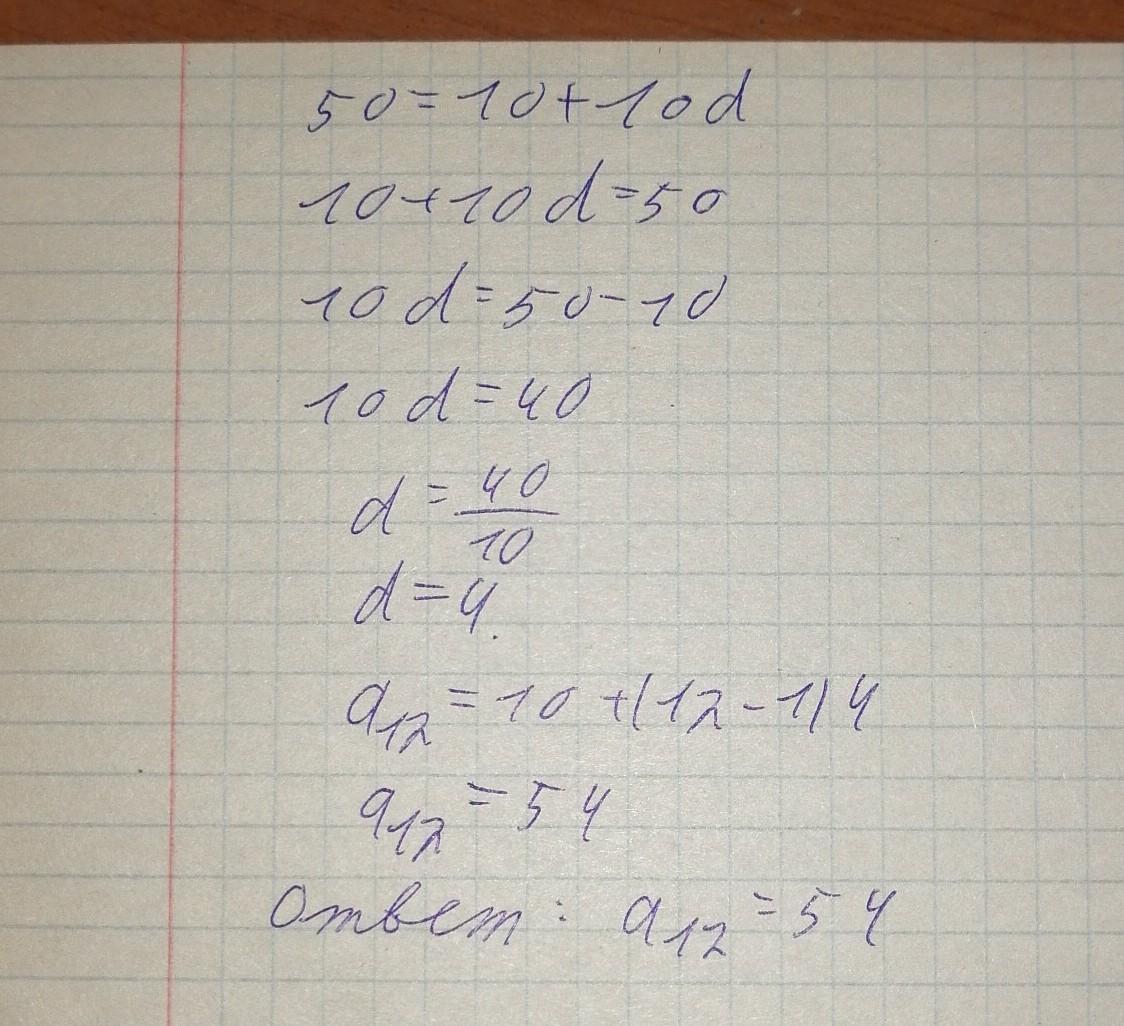 50=10+10d
10+10d=50
10d=50-10
10d=40
d=40/10
d=4.
a₁₂=10+(12-1)4
a₁₂=54
Ответ: a₁₂=54